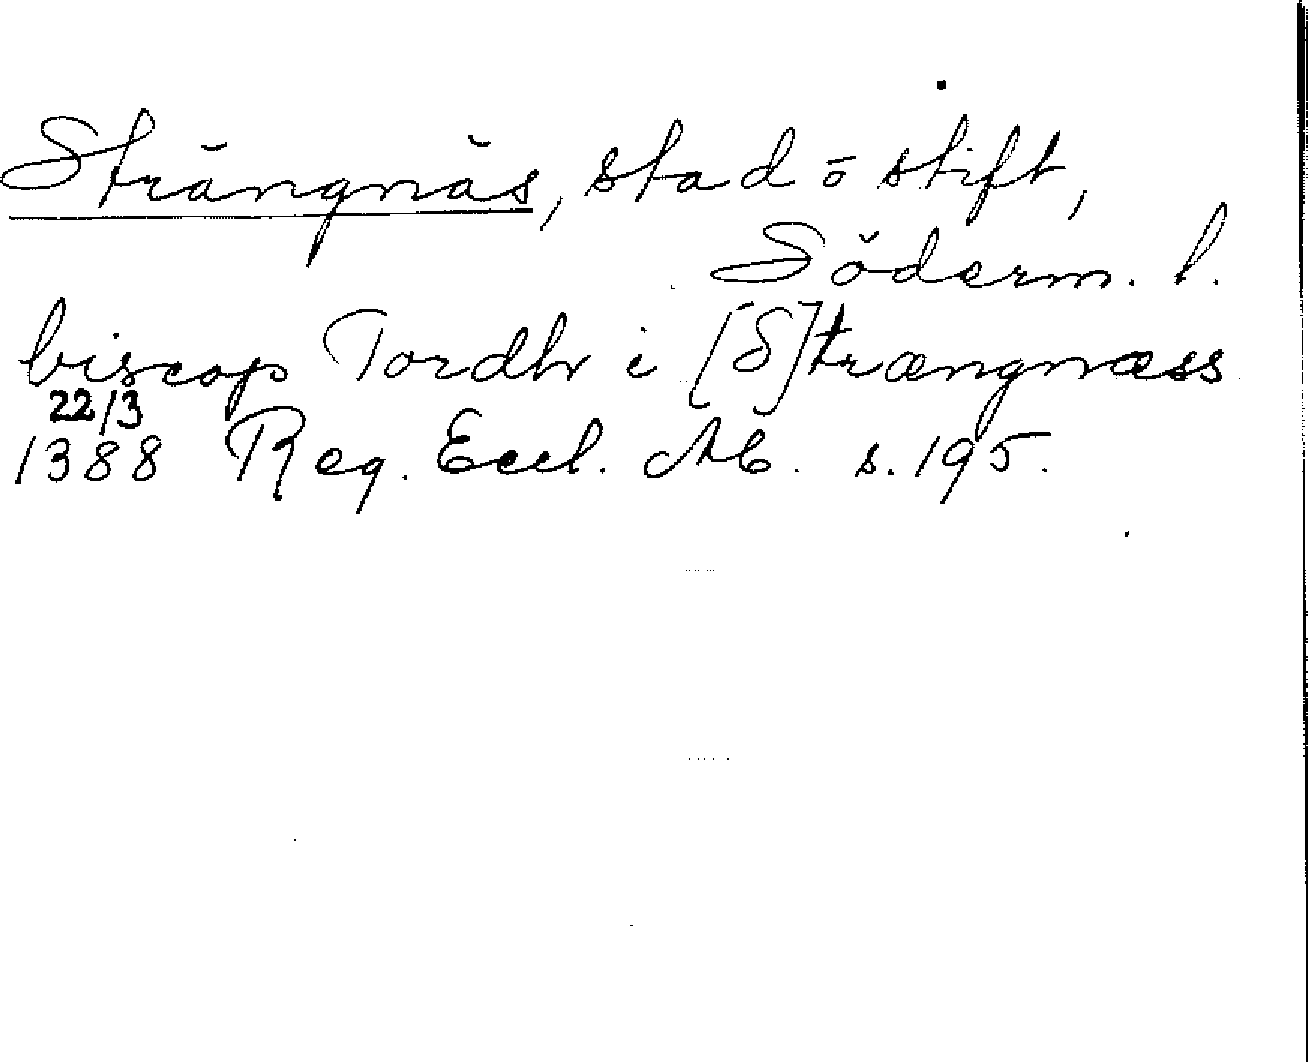 Strängnäs, stad o stift,
Söderm. l.
biscop Tordhr i [S]trængnæss
22/3
1388 Reg. Eccl. s. 195.